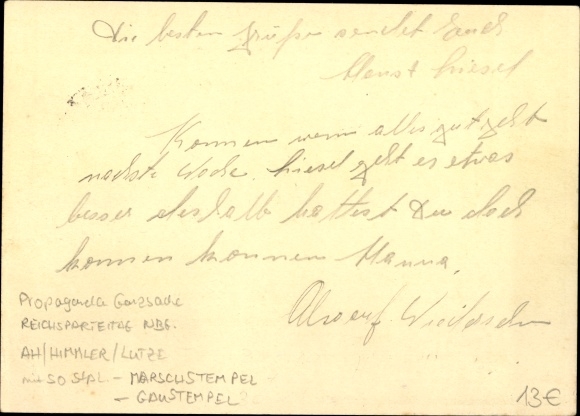 Die besten Grüße sendet Euch
Kommen wenn alles gut geht
nachste Woche. Liesel geht es etwas
besser deshalb hattest Du doch
kommen konnen Manna.
Propaganda Ganzsache
REICHSPARTEITAG NBG.
AH/HIMMLER/LUTZE
mit SO Stpl. - MARSCHSTEMPEL
- GAUSTEMPEL?
13€